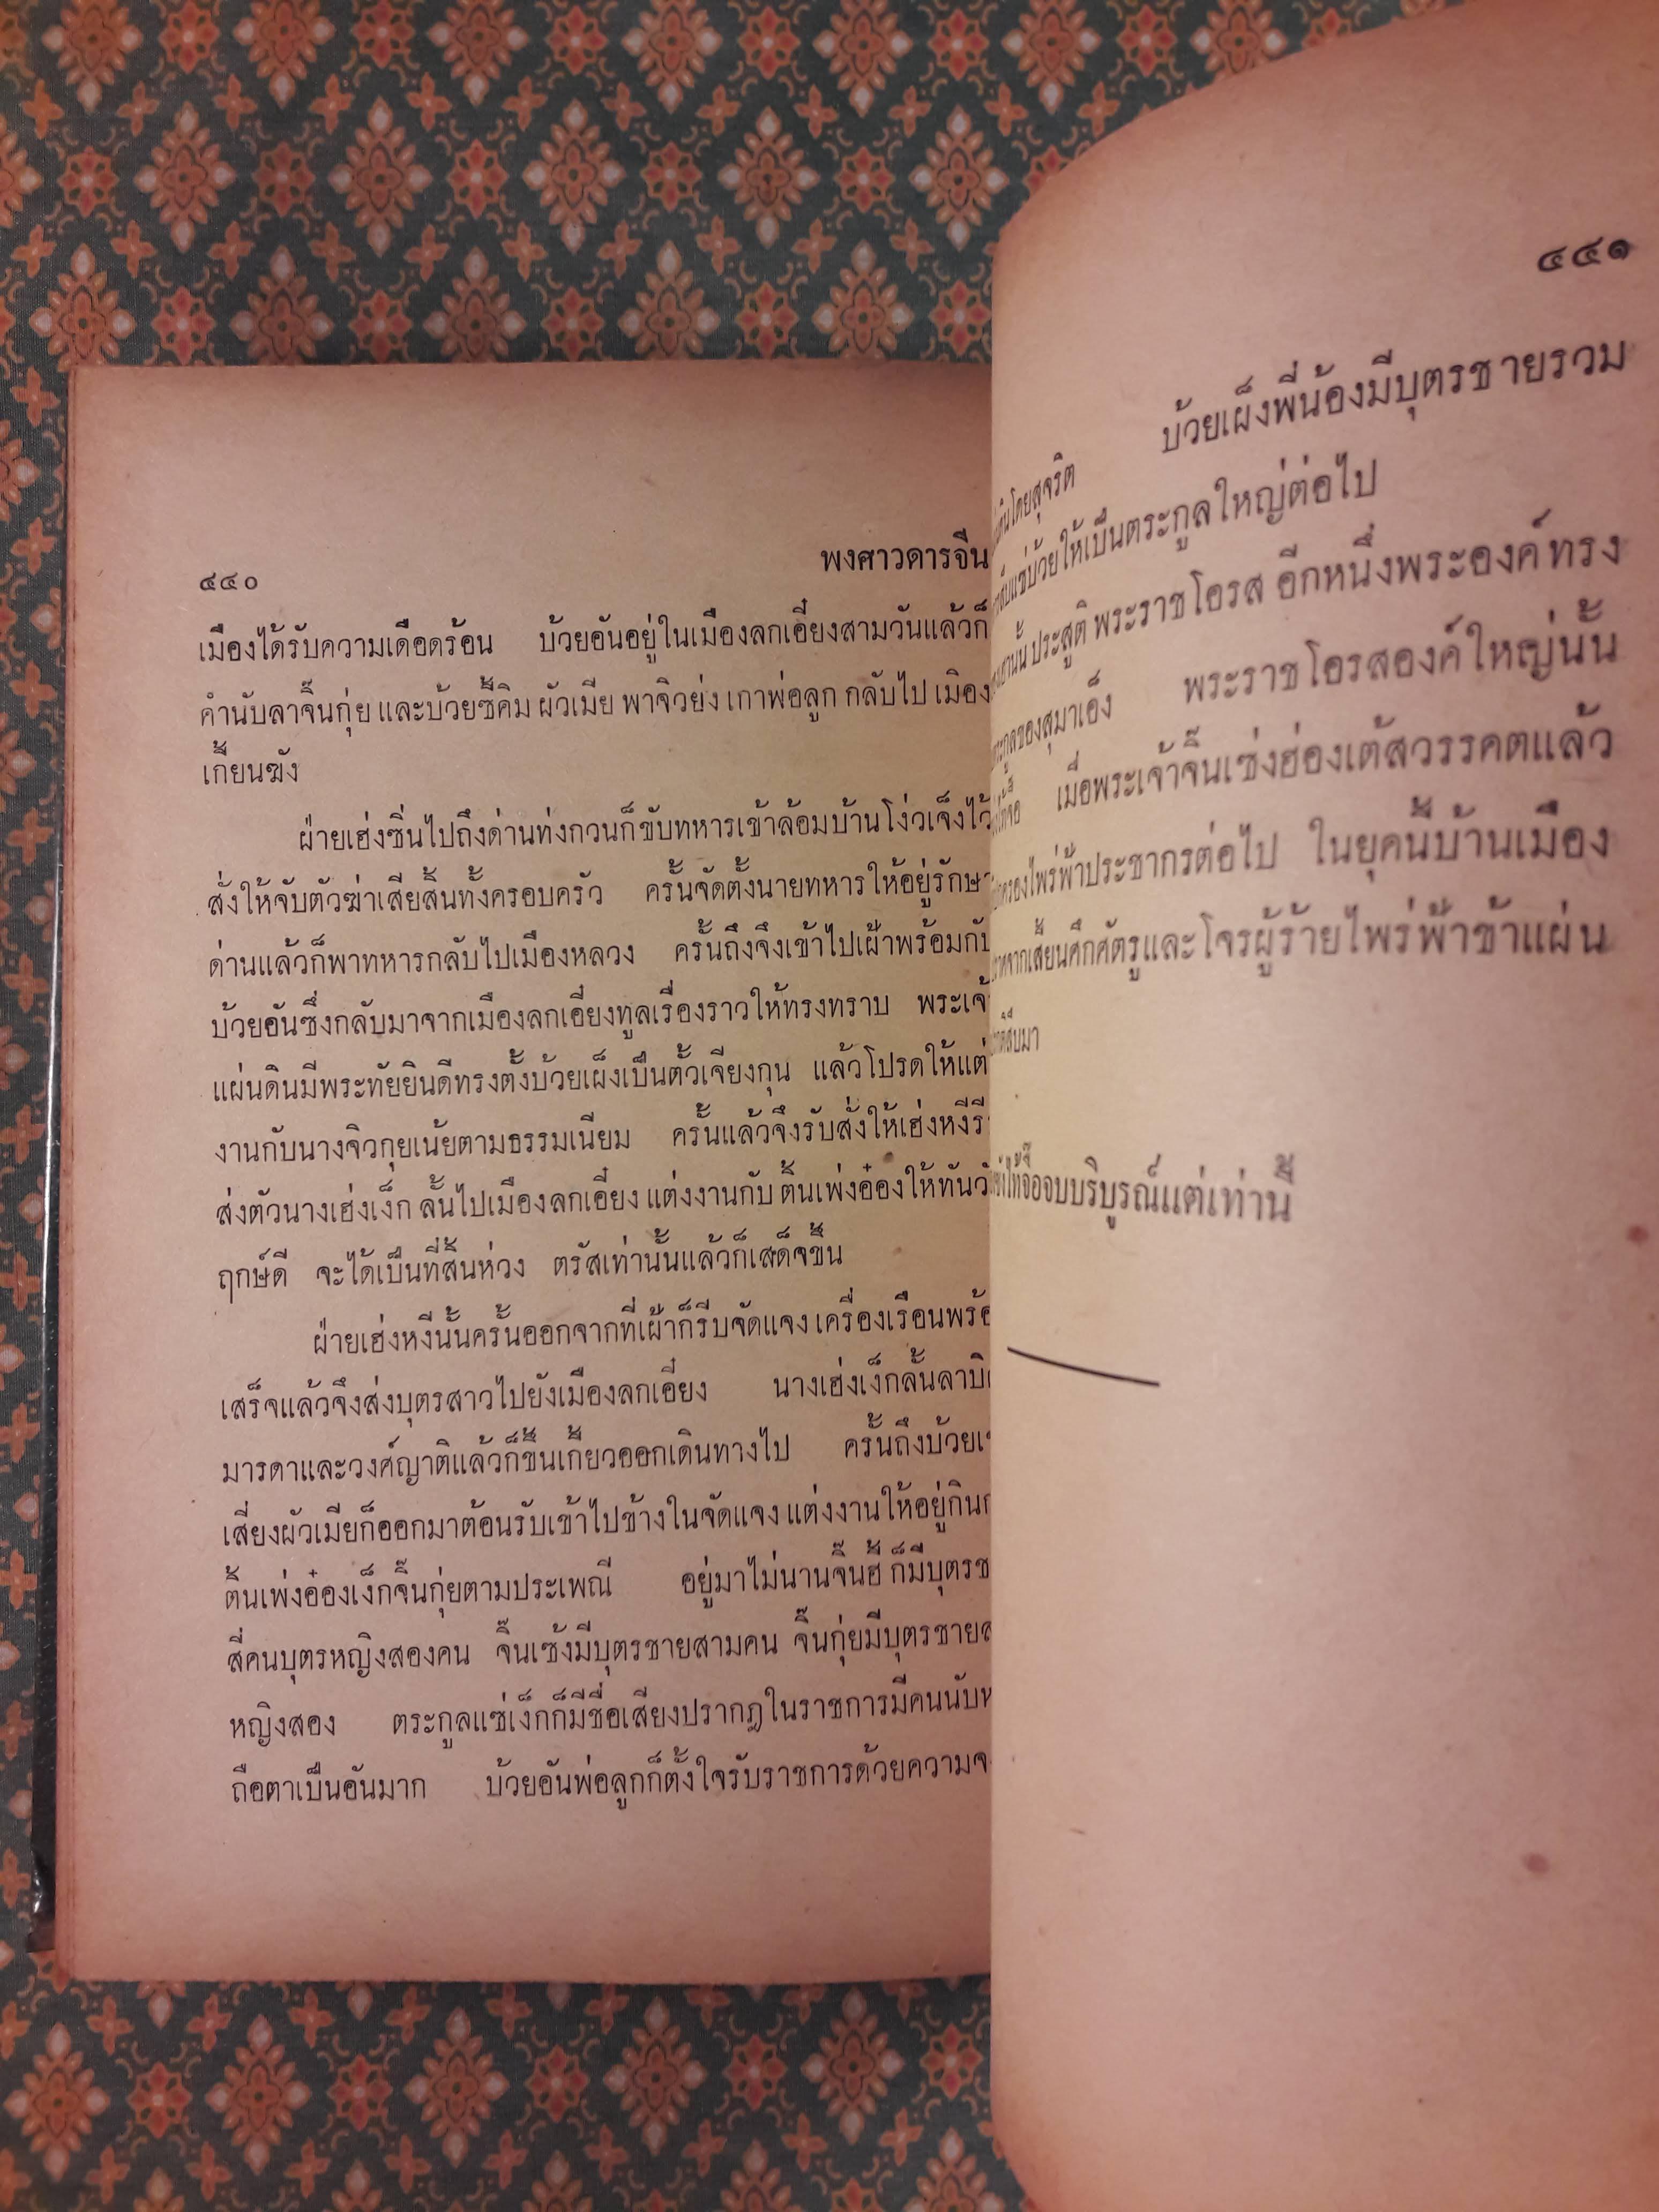 ๔๔๐
พงศาวดารจีน
เมืองได้รับความเดือดร้อน บ้วยอันอยู่ในเมืองลกเอี๋ยงสามวันแล้วก็
คำนับลาจิ๊นกุ่ย และบ้วยซี้คิม ผัวเมีย พาจิวย่ง เกาพ่อลูก กลับไป เมือง
เกี้ยนฆัง
ฝ่ายเฮ่งซิ่นไปถึงด่านท่งกวนก็ขับทหารเข้าล้อมบ้านโง่วเจ็งไว้
สั่งให้จับตัวฆ่าเสียสิ้นทั้งครอบครัว ครั้นจัดตั้งนายทหารให้อยู่รักษา
ด่านแล้วก็พาทหารกลับไปเมืองหลวง ครั้นถึงจึงเข้าไปเฝ้าพร้อมกับ
บ้วยอันซึ่งกลับมาจากเมืองลกเอี๋ยงทูลเรื่องราวให้ทรงทราบ พระเจ้
แผ่นดินมีพระทัยยินดีทรงตั้งบ้วยเผ็งเป็นตั้วเจียงกุน แล้วโปรดให้แต่
งานกับนางจิวกุยเน้ยตามธรรมเนียม ครั้นแล้วจึงรับสั่งให้เฮ่งหงีรี
ส่งตัวนางเฮ่งเง็ก ลั้นไปเมืองลกเอี๋ยง แต่งงานกับ ติ้นเพ่งอ๋องให้ทันวั
ฤกษ์ดี จะได้เป็นที่สิ้นห่วง ตรัสเท่านั้นแล้วก็เสด็จขึ้น
ฝ่ายเฮ่งหงีนั้นครั้นออกจากที่เฝ้าก็รีบจัดแจง เครื่องเรือนพร้อ
เสร็จแล้วจึงส่งบุตรสาวไปยังเมืองลกเอี๋ยง นางเฮ่งเง็กลั้นลาบิ
มารดาและวงศ์ญาติแล้วก็ขึ้นเกี้ยวออกเดินทางไป ครั้นถึงบ้วย
เสี่ยงผัวเมียก็ออกมาต้อนรับเข้าไปข้างในจัดแจง แต่งงานให้อยู่กิน
ติ้นเพ่งอ๋องเง็กจิ๊นกุ่ยตามประเพณี อยู่มาไม่นานจิ๊นฮี้ ก็มีบุตรช
สี่คนบุตรหญิงสองคน จิ๊นเซ้งมีบุตรชายสามคน จิ๊นกุ่ยมีบุตรชายส
หญิงสอง ตระกูลแซ่เง็กก็มีชื่อเสียงปรากฏในราชการมีคนนับห
ถือตาเป็นอันมาก บ้วยอันพ่อลูกก็ตั้งใจรับราชการด้วยความจ
๔๔๑
โดยสุจริต บ้วยเผ็งพี่น้องมีบุตรชายรวม
แซ่บ้วยให้เป็นตระกูลใหญ่ต่อไป
นั้น ประสูติ พระราชโอรส อีกหนึ่งพระองค์ทรง
ของสุมาเอ็ง พระราชโอรสองค์ใหญ่นั้น
เมื่อพระเจ้าจิ๊นเซ่งฮ่องเต้สวรรคตแล้ว
ครองไพร่ฟ้าประชากรต่อไป ในยุคนี้บ้านเมือง
จากเสี้ยนศึกศัตรูและโจรผู้ร้ายไพร่ฟ้าข้าแผ่น
สืบมา
จบบริบูรณ์แต่เท่านี้